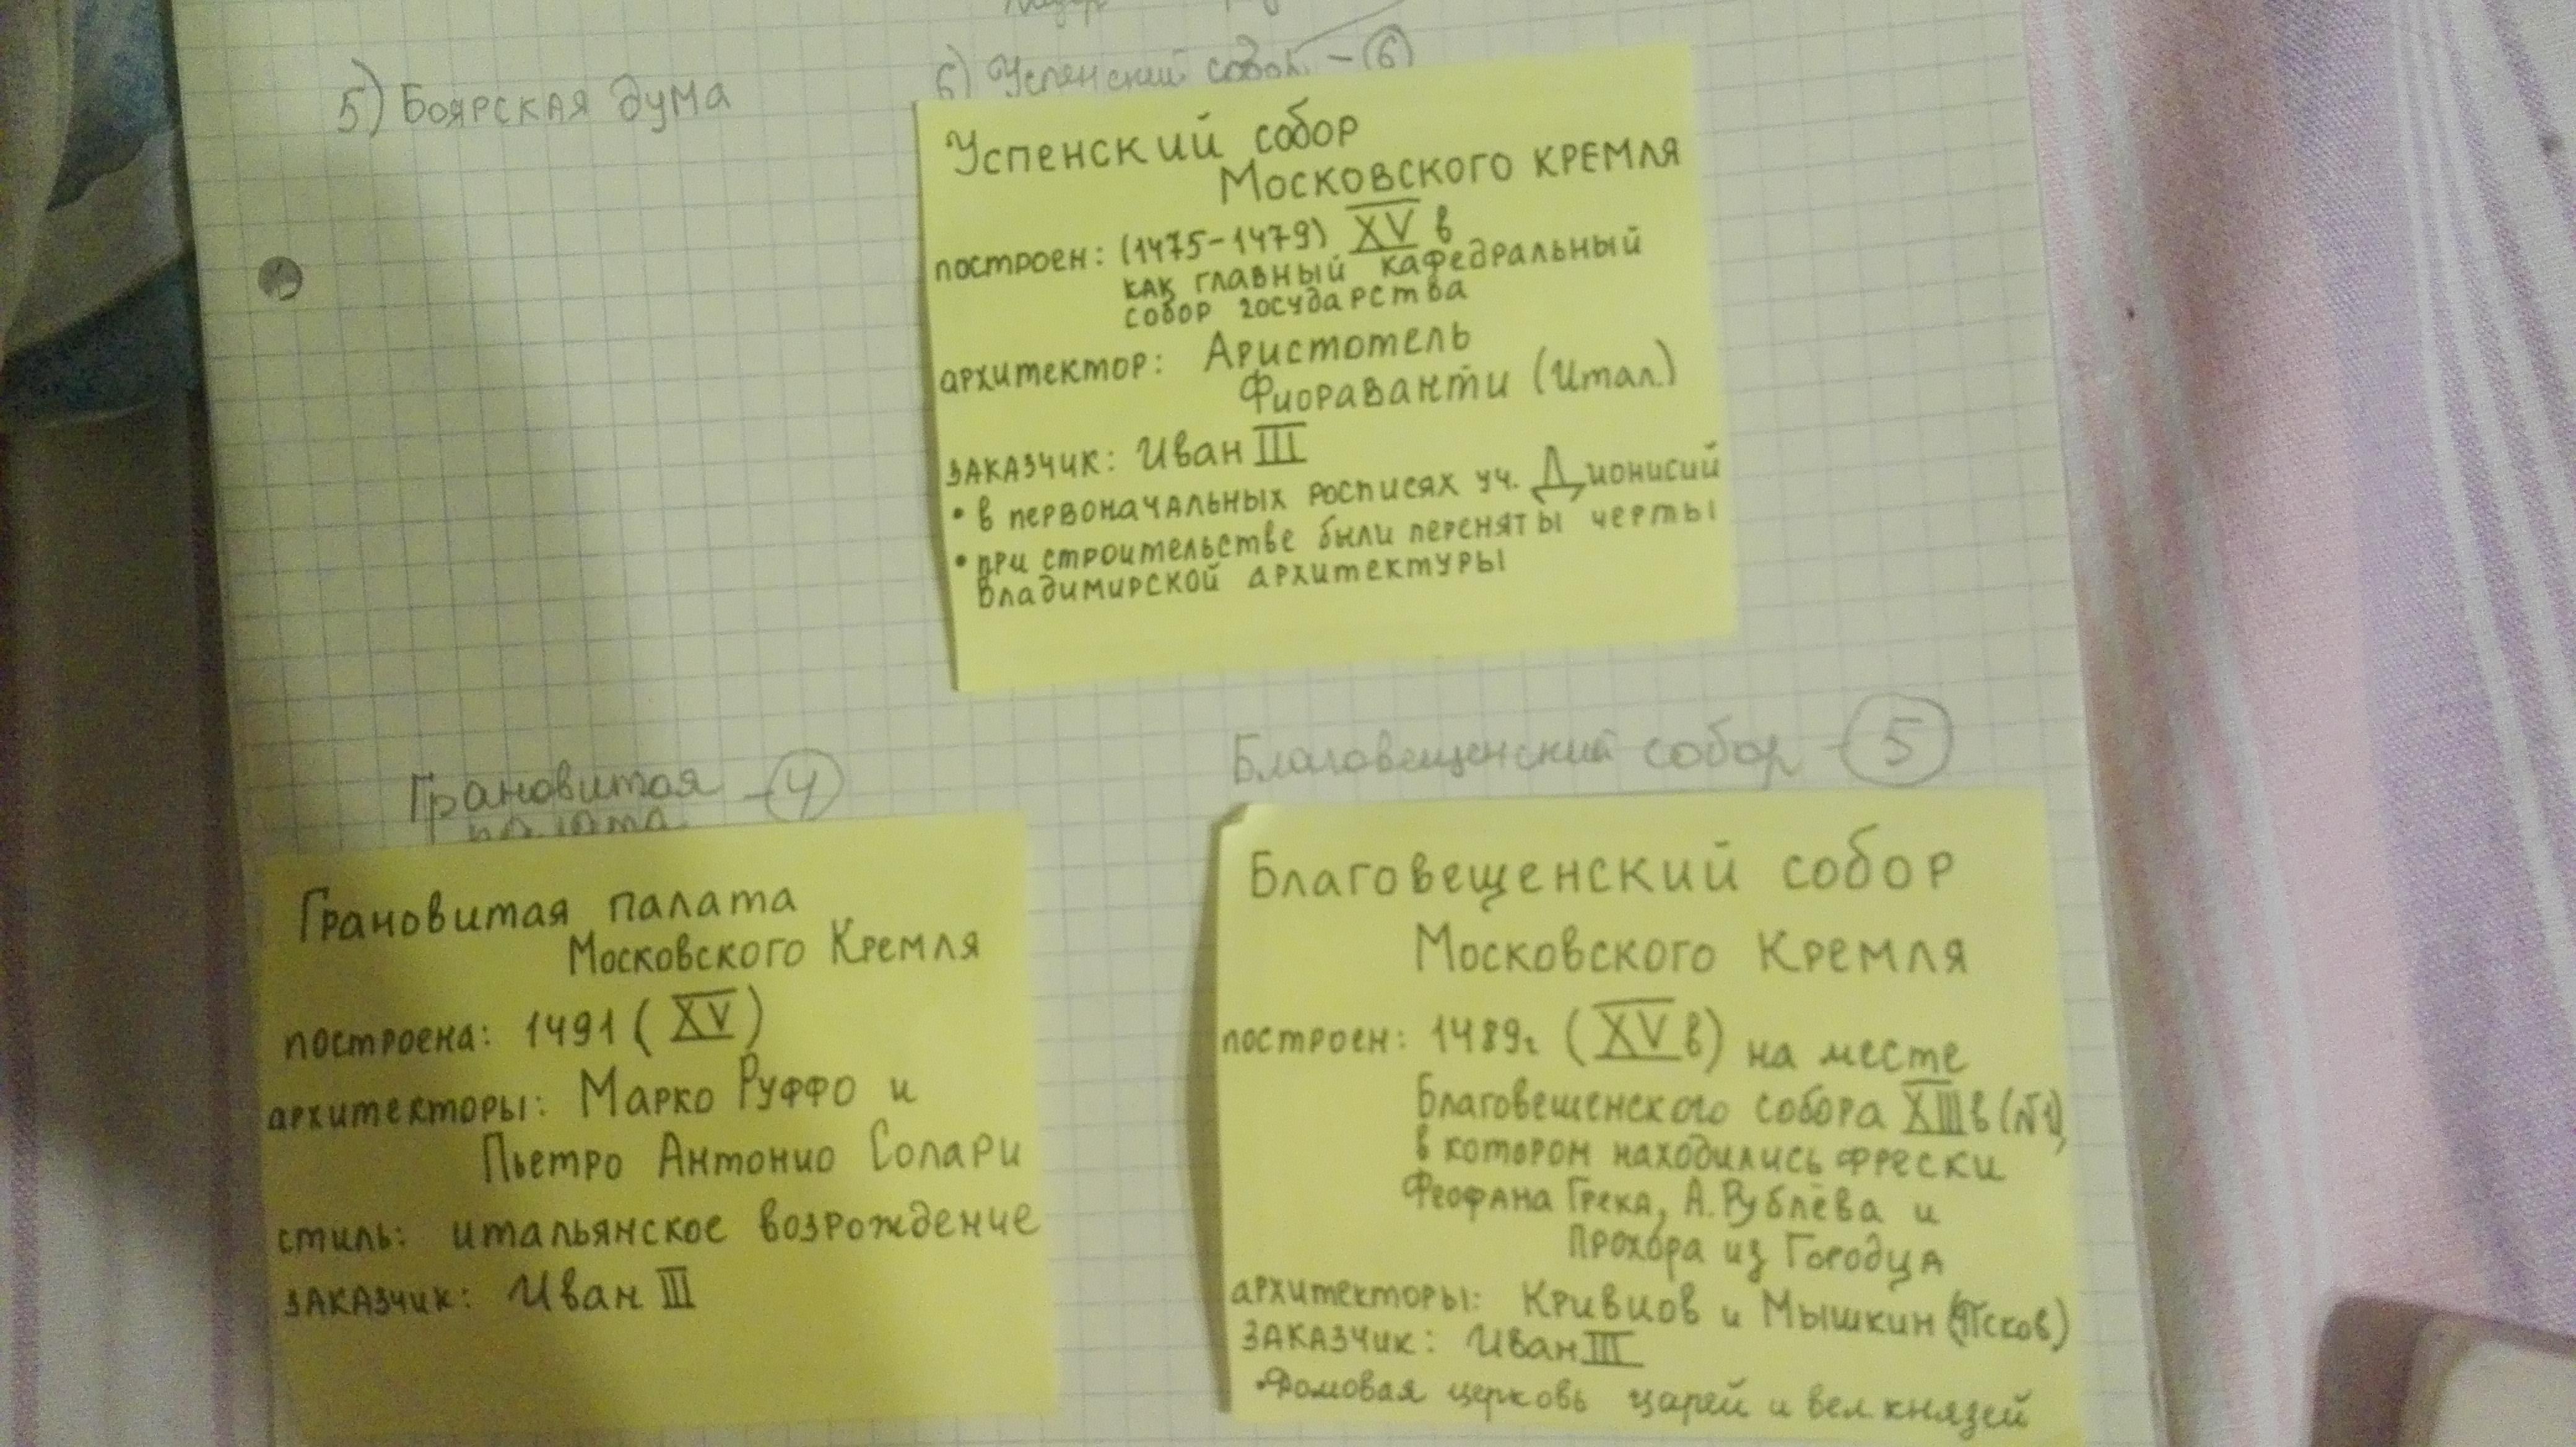 5) Боярская дума
6) Успенский собор - 6
Успенский собор
Московского Кремля
построен: (1475-1479) XV в
как главный кафедральный
собор государства
архитектор: Аристотель
Фиораванти (Итал.)
заказчик: Иван III
• в первоначальных росписях уч. Дионисий
• при строительстве были переняты черты
Владимирской архитектуры
Грановитая - 4
палата
Грановитая палата
Московского Кремля
построена: 1491 (XV)
архитекторы: Марко Руффо и
Пьетро Антонио Солари
стиль: итальянское возрождение
заказчик: Иван III
Благовещенский собор - 5
Благовещенский собор
Московского Кремля
построен: 1489г (XV в) на месте
Благовешенского собора XIII в (№1),
в котором находились фрески
Феофана Грека, А. Рублёва и
Прохора из Городца
архитекторы: Кривцов и Мышкин (Псков)
заказчик: Иван III
• Домовая церковь царей и вел князей